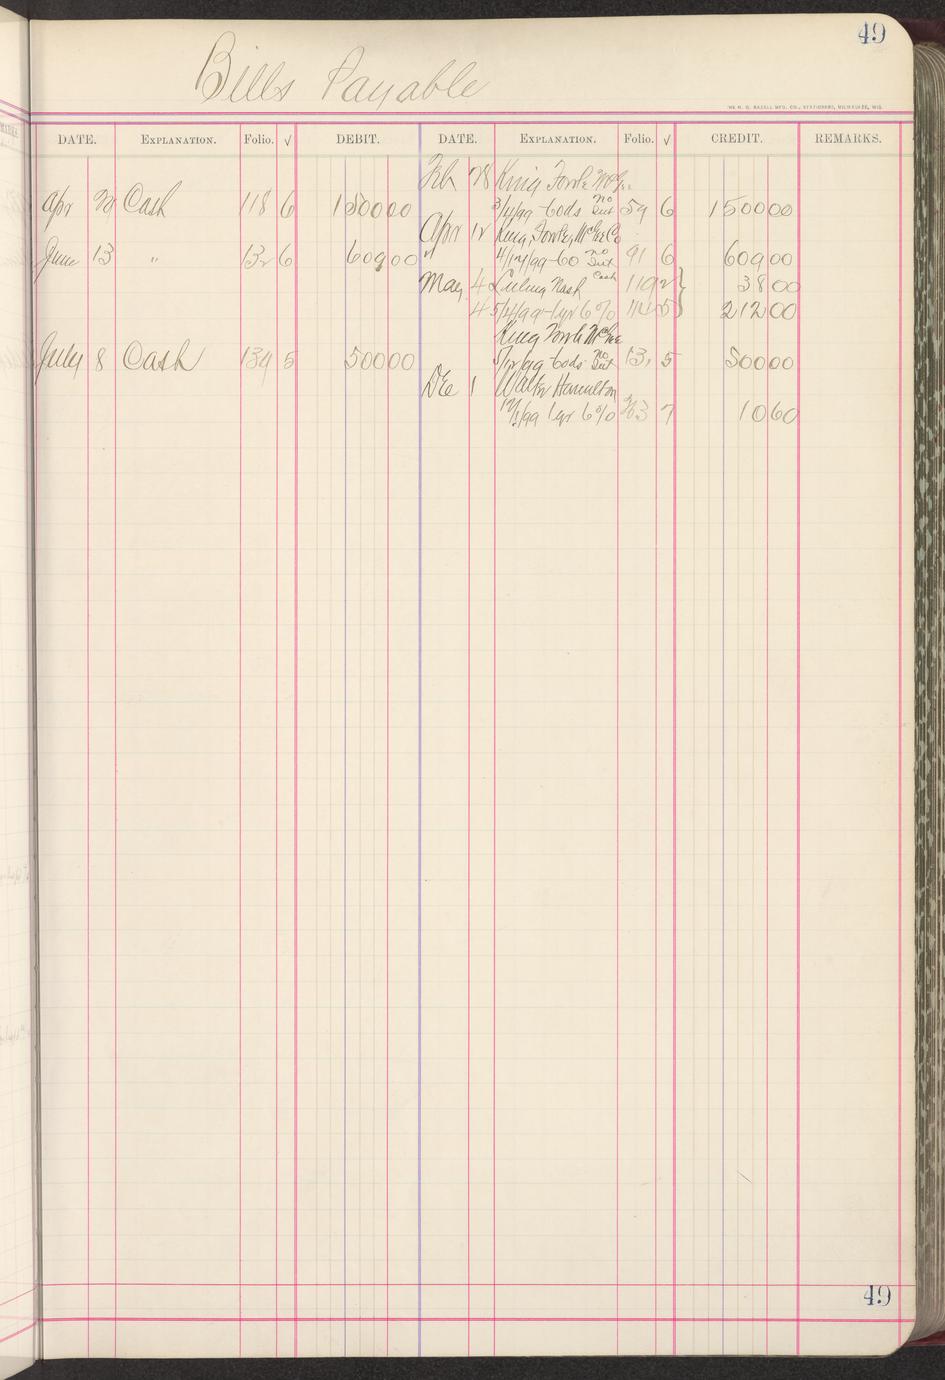 49
Bills Payable
THE H. G. RAZALL MFG. CO., STATIONERS, MILWAUKEE, WIS.
DATE. EXPLANATION. Folio. √ DEBIT. DATE. EXPLANATION. Folio. √ CREDIT. REMARKS.
Feb 28 King Fowle McGee
Apr Cash 118 6 150000 3/4/99 60ds no Int 59 6 150000
Apr 12 King, Fowle, McGee Co
June 13 " 132 6 60900 4/12/99-60 no Int 91 6 60900
May 4 Luling Nash Cash 119 2 3800
4 5/4/99-1yr 6% 114 5 21200
King Fowle McGee
July 8 Cash 134 5 50000 60ds no Int 131 5 50000
Dec 1 Walter Hamilton
12/1/99 1yr 6% 7 1060
49